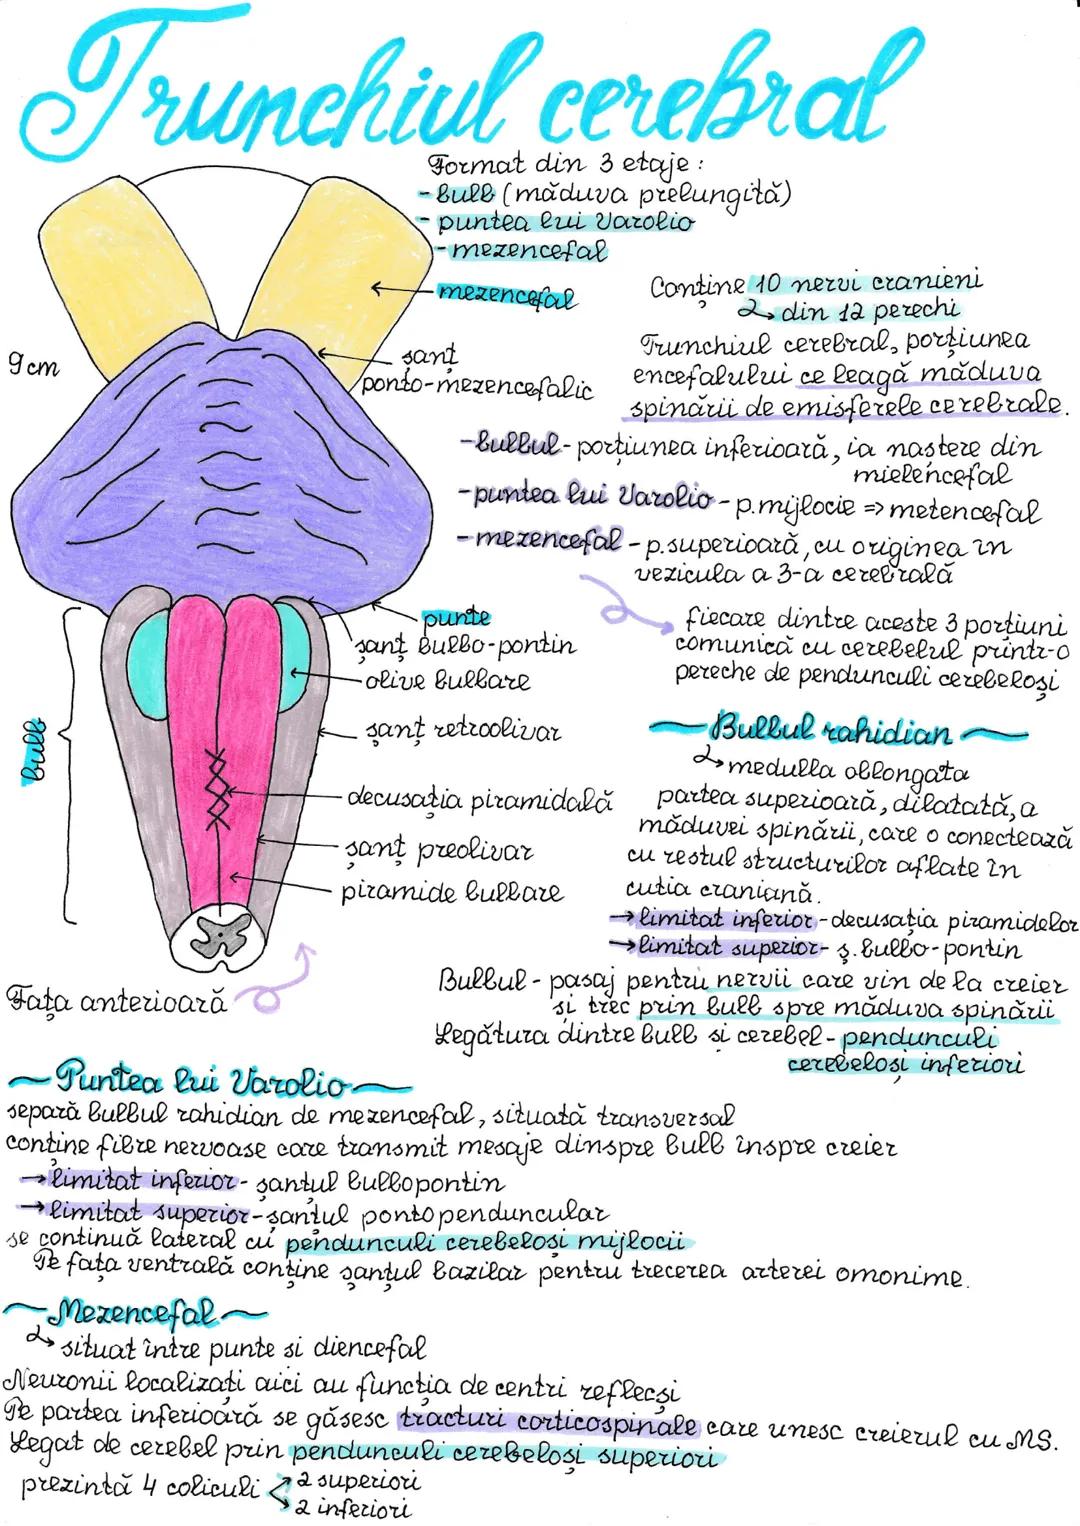 Trunchiul cerebral
Format din 3 etaje:
- bulb (măduva prelungită)
- puntea lui Varolio
- mezencefal
mezencefal
Conține 10 nervi cranieni
din 12 perechi
9 cm
șanț
ponto-mezencefalic
Trunchiul cerebral, porțiunea
encefalului ce leagă măduva
spinării de emisferele cerebrale.
- bulbul - porțiunea inferioară, ia nastere din
mielencefal
- puntea lui Varolio - p. mijlocie => metencefal
- mezencefal - p. superioară, cu originea în
vezicula a 3-a cerebrală
fiecare dintre aceste 3 porțiuni
comunică cu cerebelul printr-o
pereche de pendunculi cerebeloși
punte
șanț bulbo-pontin
olive bulbare
șanț retroolivar
decusația piramidală
șanț preolivar
piramide bulbare
bulb
Fața anterioară
Bulbul rahidian
medulla oblongata
partea superioară, dilatată, a
măduvei spinării, care o conectează
cu restul structurilor aflate în
cutia craniană.
→ limitat inferior - decusația piramidelor
→ limitat superior - ș. bulbo-pontin
Bulbul - pasaj pentru nervii care vin de la creier
si trec prin bulb spre măduva spinării
Legătura dintre bulb si cerebel - pendunculi
cerebeloși inferiori
Puntea lui Varolio
separă bulbul rahidian de mezencefal, situată transversal
conține fibre nervoase care transmit mesaje dinspre bulb înspre creier
→ limitat inferior - șanțul bulbopontin
→ limitat superior - șanțul pontopenduncular
se continuă lateral cu pendunculi cerebeloși mijlocii
Pe fața ventrală conține șanțul bazilar pentru trecerea arterei omonime.
Mezencefal
situat între punte si diencefal
Neuronii localizați aici au funcția de centri reflecși
Pe partea inferioară se găsesc tracturi corticospinale care unesc creierul cu MS.
Legat de cerebel prin pendunculi cerebeloși superiori
prezintă 4 coliculi
2 superiori
2 inferiori